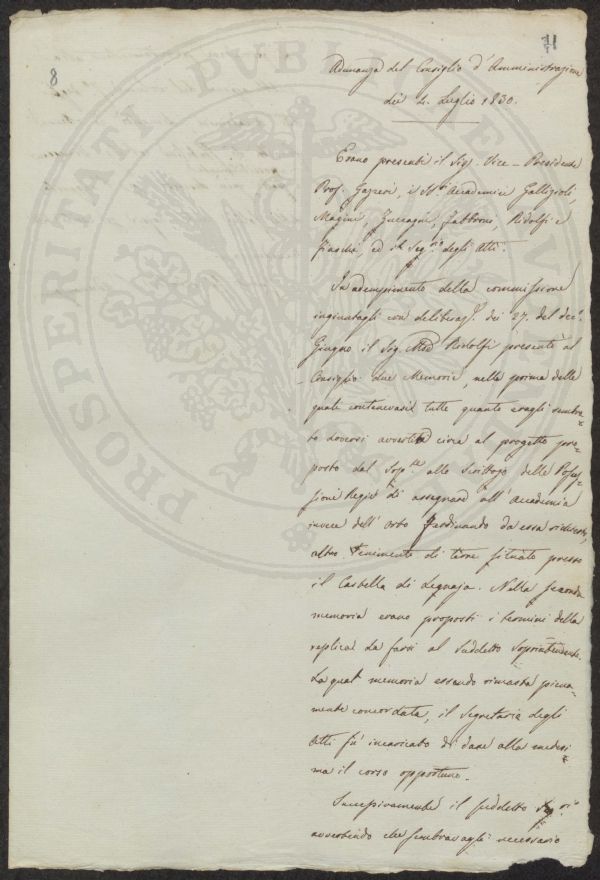 8
11
Adunanza del Consiglio d'Amministrazione
del 4. Luglio 1830.
Erano presenti il Sig. Vice-Presidente
Prof. Gazzeri, i SS.ri Accademici Gallizioli,
Magini, Zuccagni, Fabbroni, Ridolfi e
ed il Seg.rio degli Atti.
In adempimento della commissione
ingiuntagli con deliberaz.e dei 27. del dec.o
Giugno il Sig. Ridolfi presentò al
Consiglio due Memorie, nella prima delle
quali contenevasi tutto quanto eragli sembra=
to doversi avvertire circa al progetto pro=
posto dal Sop.te allo Scrittojo delle Posses=
sioni Regie di assegnare all'Accademia
invece dell'Orto Ferdinando da essa richiesto,
altro tenimento di terre situato presso
il Castello di Legnaja. Nella seconda
memoria erano proposti i termini della
replica da farsi al suddetto Soprintendente.
La qual memoria essendo rimasta piena=
mente concordata, il Segretario degli
Atti fù incaricato di dare alla medesi=
ma il corso opportuno.
Successivamente il suddetto Seg.rio
avvertendo che sembravagli necessario
PROSPERITATI PVBLICAE